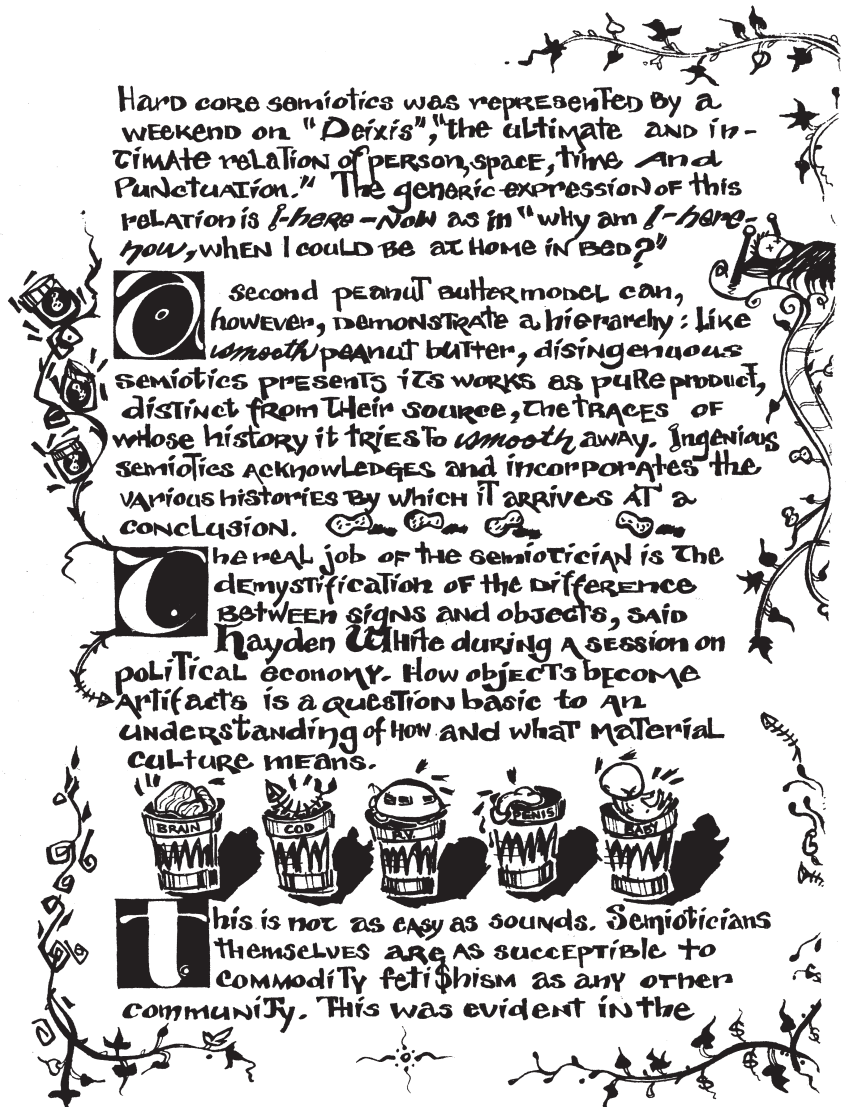 Hard core semiotics was represented by a
weekend on "Deixis", "the ultimate and in-
timate relation of person, space, time and
punctuation." The generic expression of this
relation is I-here-now as in "why am I-here-
now, when I could be at home in bed?"
A second peanut butter model can,
however, demonstrate a hierarchy: like
smooth peanut butter, disingenuous
semiotics presents its works as pure product,
distinct from their source, the traces of
whose history it tries to smooth away. Ingenious
semiotics acknowledges and incorporates the
various histories by which it arrives at a
conclusion.
The real job of the semiotician is the
demystification of the difference
between signs and objects, said
Hayden White during a session on
political economy. How objects become
artifacts is a question basic to an
understanding of how and what material
culture means.
BRAIN COD R.V. PENIS BABY
This is not as easy as sounds. Semioticians
themselves are as succeptible to
commodity feti$hism as any other
community. This was evident in the